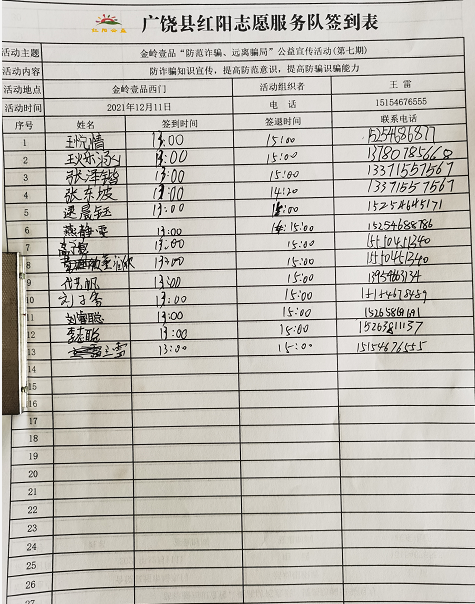 红阳公益 广饶县红阳志愿服务队签到表
活动主题 金岭壹品“防范诈骗、远离骗局”公益宣传活动(第七期)
活动内容 防诈骗知识宣传，提高防范意识，提高防骗识骗能力
活动地点 金岭壹品西门 活动组织者 王雷
活动时间 2021年12月11日 电话 15154676555
序号 姓名 签到时间 签退时间 联系电话
1 13:00 15:00
2 13:00 15:00
3 张泽锴 13:00 15:00 13371557567
4 张东波 13:00 14:20 13371557567
5 13:00 15:00 15254645171
6 燕静雯 13:00 15:00 15254688786
7 13:00 15:00
8 13:00 15:00
9 13:00 15:00
10 13:00 15:00
11 刘睿聪 13:00 15:00
12 13:00 15:00 15263811137
13 王雷 13:00 15:00 15154676555
14
15
16
17
18
19
20
21
22
23
24
25
26
27